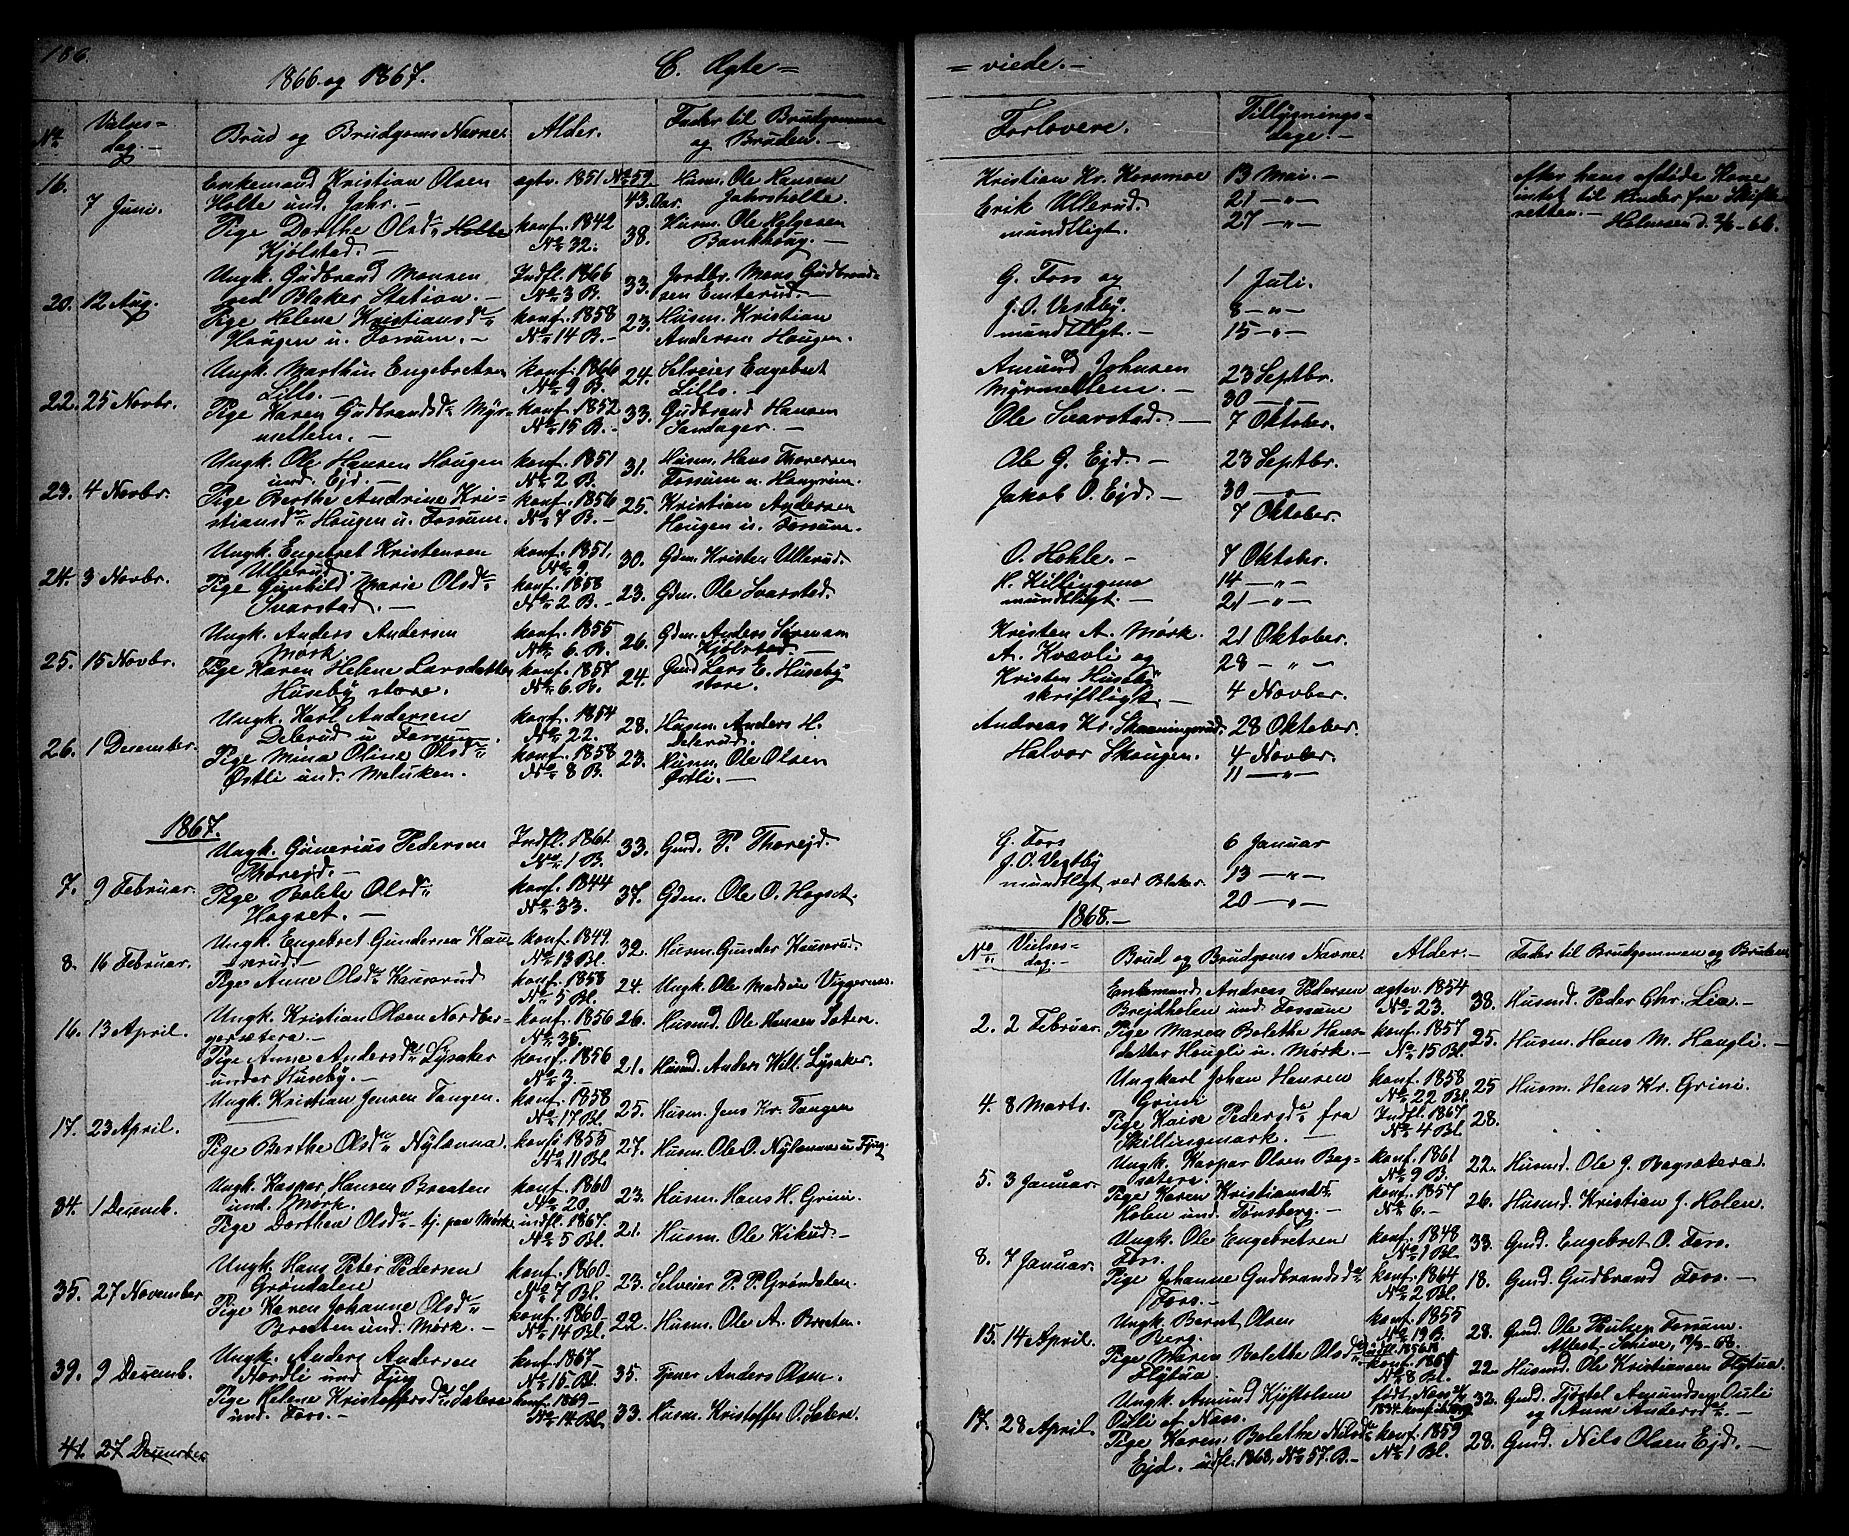 186.
1866 og 1867.
C. Ægte =
No
Vielses=
dag.
Brud og Brudgoms Navne.
Alder.
Fader til Brudgommen
og Bruden.
16.
7 Juni.
Enkemand Kristian Olsen
Holte und. Jahr.
Pige Dorthe Olsdr Holte
Kjølstad.
egtv. 1851 No 59
43. Aar.
konf. 1842
No 32.
38.
Husm. Ole Hansen
Jahrsholte.
Husm. Ole Helgesen
Bankhaug.
20.
12 Aug.
Ungk. Gudbrand Monsen
ved Blaker Station.
Pige Helene Kristiansdr
Haugen u. Fossum.
Indfl. 1866
No 3 B.
33.
konf. 1858
No 14 B.
23.
Jordbr. Mons Gudbrand=
sen Emterud.
Husm. Kristian
Andersen Haugen.
22.
25 Novbr.
Ungk. Marthin Engebretsen
Lillo.
Pige Karen Gudbrandsdr Myr=
mettem.
konf. 1866
No 9 B.
24.
konf. 1852
No 15 B.
33.
Selveier Engebret
Lillo.
Gudbrand Hansen
Sandager.
23.
4 Novbr.
Ungk. Ole Hansen Hougen
und. Ejd.
Pige Berthe Andrine Kri=
stiansdr Hougen u. Fossum.
konf. 1851
No 2 B.
31.
konf. 1856
No 7 B.
25.
Husm. Hans Thoresen
Fossum u.
Kristian Andersen
Hougen u. Fossum.
24.
3 Novbr.
Ungk. Engebret Kristensen
Ullerud.
Pige Gunhild Marie Olsdr
Svarstad.
konf. 1851.
No 9.
30.
konf. 1858
No 2 B.
23.
Gdm. Kristen Ullerud.
Gdm. Ole Svarstad.
25.
15 Novbr.
Ungk. Anders Andersen
Mørk.
Pige Karen Helene Larsdatter
Huseby store.
konf. 1855
No 6. B.
26.
konf. 1857
No 6 B.
24.
Gdm. Anders Sørensen
Kjølstad.
Gmd Lars E. Huseby
store.
26.
1 December.
Ungk. Karl Andersen
Delerud u. Fossum.
Pige Mina Oline Olsdr
Østli und. Maluken.
konf. 1854
No 22.
28.
konf. 1858
No 8 B.
23.
Husm. Anders H.
Delerud.
Husm. Ole Olsen
Østli.
1867.
7.
9 Februar.
Ungk. Gunerius Pedersen
Thorejd.
Pige Bolette Olsdr
Hogset.
Indfl. 1861
No 1 B.
33.
konf. 1844
No 33.
37.
Gmd. P. Thorejd.
Gdm. Ole O. Hogset.
8.
16 Februar.
Ungk. Engebret Gundersen Kau=
serud.
Pige Anne Olsdr Kauserud
konf. 1849.
No 13 Bl.
32.
konf. 1858
No 5 Bl.
24.
Husm. Gunder Kauserud.
Ungk. Ole Madsen Viggernes.
16.
13 April.
Ungk. Kristian Olsen Nordber=
gersætera.
Pige Anne Andersdr Lysaker
under Huseby.
konf. 1856
No 36.
26.
konf. 1856
No 3
21.
Husmd. Ole Hansen Sætere.
Husmd. Anders Will. Lysaker.
17.
23 April.
Ungk. Kristian Jensen Tangen.
Pige Berthe Olsdr Nylænna.
konf. 1858
No 17 Bl.
25.
konf. 1855
No 11 Bl.
27.
Husm. Jens Kr. Tangen
Husm. Ole O. Nylænna u Fjug
34.
1 Decemb.
Ungk. Kaspar Hansen Braaten
und. Mørk.
Pige Dorthea Olsdr tj. paa Mørk.
konf. 1860
No 20.
23.
indfl. 1867.
No 5 Bl.
21.
Husm. Hans H. Grini.
Husm. Ole Kikud.
35.
27 November
Ungk. Hans Peter Pedersen
Grøndalen
Pige Karen Johanne Olsdr
Braaten und. Mørk.
konf. 1860
No 7 Bl.
23.
konf. 1860
No 14 Bl.
22.
Selveier P. P. Grøndalen.
Husm. Ole A. Braaten.
39.
9 Decemb.
Ungk. Anders Andersen
Nordli und Fjug
Pige Helene Kristoffersdr Sætere
und. Fors.
konf. 1867
No 15. Bl.
35.
konf. 1869
No 14 Bl.
33.
Tjener Anders Olsen.
Husm. Kristoffer O. Sætere.
41.
27 December
= viede.
Forlovere.
Tillysnings=
dage.
Kristian Kr. Korsmoe
Erik Ullerud.
mundtligt.
13 Mai.
21 — " —
27 — " —
efter hans afdøde Kone
intet til Hinder fra Skifte
retten.
Holmsen d. 3/6-66.
G. Fors og
J. O. Vestby.
mundtligt.
1 Juli.
8 — " —
15 — " —
Amund Johnsen
Myrmettem.
Ole Svarstad.
23 Septbr.
30 — " —
7 Oktober.
Ole G. Ejd.
Jakob O. Ejd.
23 Septbr.
30 — " —
7 Oktober.
O. Hehle.
K. Killingmo
mundtligt.
7 Oktober.
14 — " —
21 — " —
Kristen A. Mørk.
A. Kvævli og
Kristen Huseby
skriftligt.
21 Oktober.
28 — " —
4 Novber.
Andreas Kr. Skanningsrud.
Halvor Skougen.
28 Oktober.
4 Novber.
11 — " —
G. Fors
J. O. Vestby
mundtligt ved Blaker.
6 Januar
13 — " —
20 — " —
1868.
No
Vielses=
dag.
Brud og Brudgoms Navne
Alder.
Fader til Brudgommen og Bruden.
2.
2 Februar.
Enkemand Andreas Pedersen
Brejdholen und. Fossum
Pige Maren Bolethe Hans=
datter Haugli u. Mørk.
egtev. 1854
No 23.
38.
konf. 1857
No 15 Bl.
25.
Husmd. Peder Chr. Lia
Husm. Hans M. Haugli.
4.
8 Marts.
Ungkarl Johan Hansen
Grini
Pige Kaisa Pedersdr fra
Skillingmark.
konf. 1858
No 22 Bl.
25
Indfl. 1867
No 4 Bl.
28.
Husm. Hans Kr. Grini.
5.
3 Januar.
Ungk. Kaspar Olsen Bag=
sætere.
Pige Karen Kristiansdr
Holen und. Tønsberg.
konf. 1861
No 9 B.
22.
konf. 1857
No 6.
26.
Husmd. Ole J. Bagsætera.
Husmd. Kristian J. Holen.
8.
7 Januar.
Ungk. Ole Engebretsen
Fors.
Pige Johanne Gudbrandsdr
Fors.
konf. 1848
No 1 Bl.
33.
konf. 1864
No 2 Bl.
18.
Gmd. Engebret O. Fors.
Gmd. Gudbrand Fors.
15.
14 April.
Ungk. Bernt Olsen
Berg.
Pige Maren Bolette Olsdr
Flytua.
konf. 1855
No 19 B.
28.
No 8 Bl.
22.
Gmd. Ole Paulsen Fossum.
Attest
Husmd. Ole Kristiansen Flytua.
17.
28 April.
Ungk. Amund Kjøstolsen
Oulli af Næss.
Pige Karen Bolethe Nilsdr
Ejd. indfl. 1863, No 57. B.
født Næss
1834
32.
konf. 1859
No 1 Bl.
28.
Gmd. Kjøstel Amundsen Oulli
og Anne Andersdr.
Gmd. Nils Olsen Ejd.